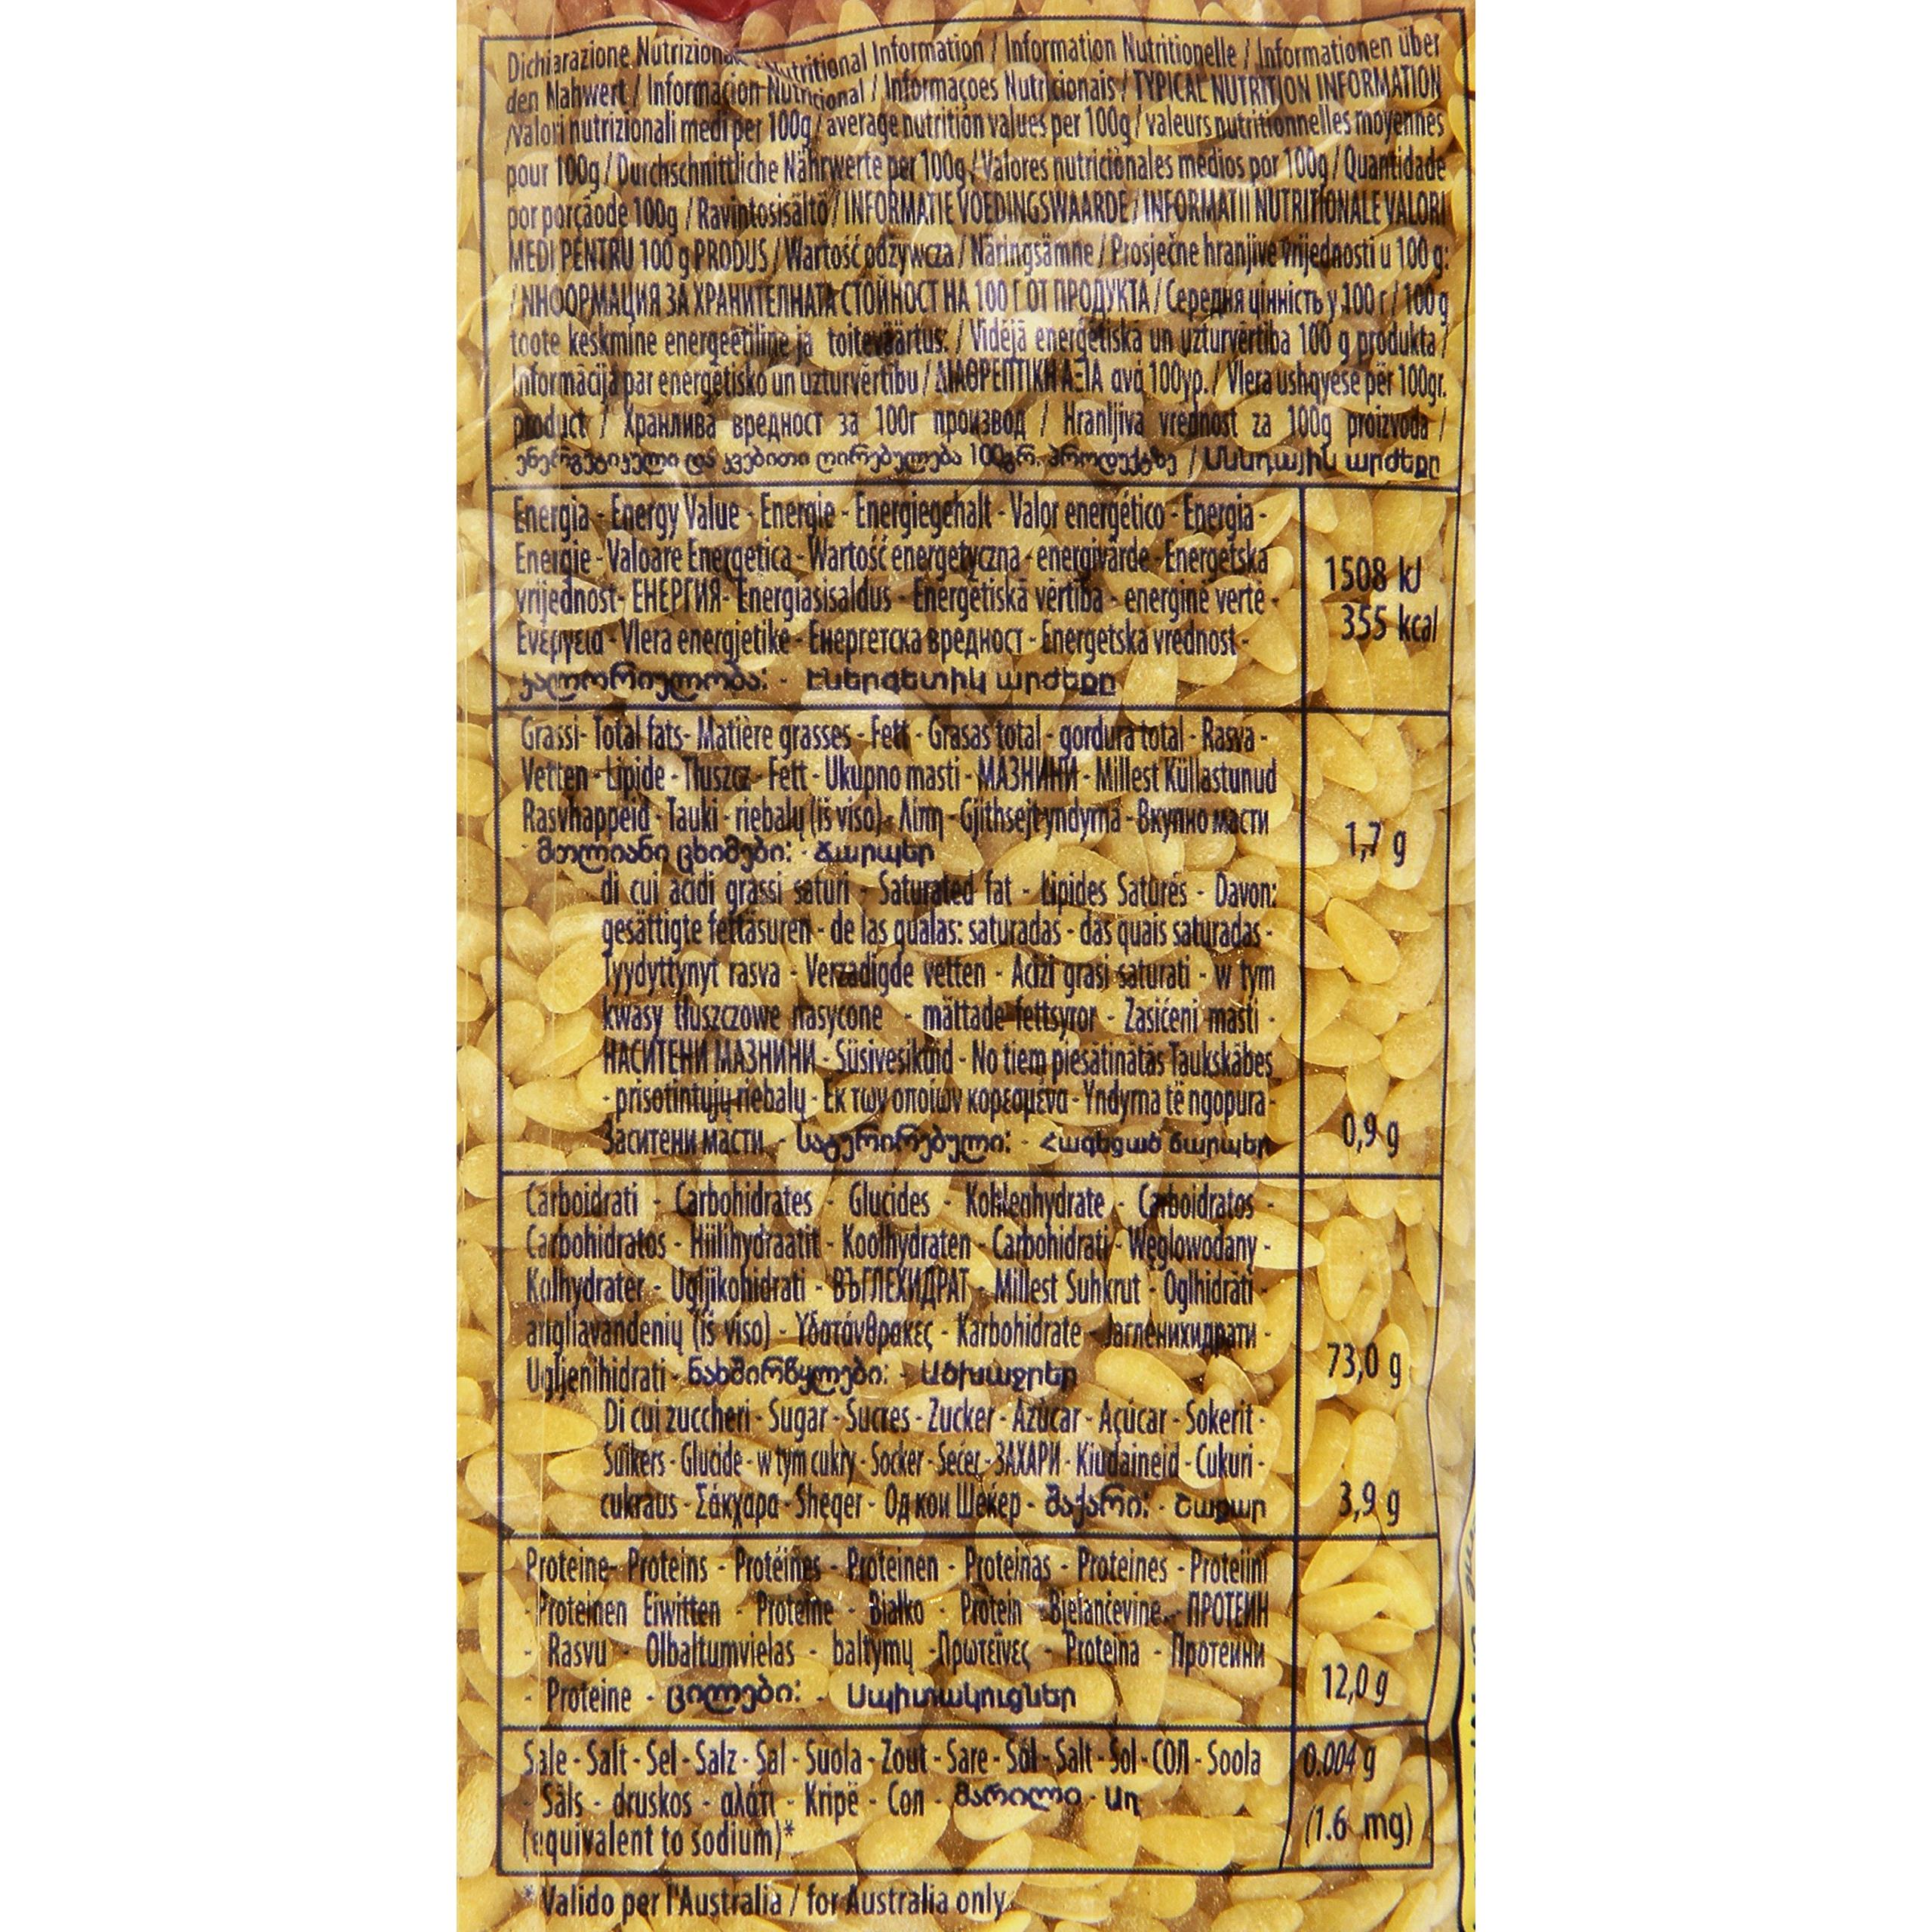 Dichiarazione Nutritional Information / Information Nutritionelle / Informationen über
den Nahwert / Informacion Nutricional / Informaçoes Nutricionais / TYPICAL NUTRITION INFORMATION
/valori nutrizionali medi per 100g / average nutrition values per 100g / valeurs nutritionnelles moyennes
pour 100g / Durchschnittliche Nährwerte per 100g / Valores nutricionales medios por 100g / Quantidade
por porçãode 100g / Ravintosisältö / INFORMATIE VOEDINGSWAARDE / INFORMATII NUTRITIONALE VALORI
MEDI PENTRU 100 g PRODUS / Wartość odżywcza / Näringsämne / Prosječne hranjive vrijednosti u 100 g:
ЗА ХРАНИТЕЛНАТА СТОЙНОСТ НА 100 Г ОТ ПРОДУКТА / Середня цінність у 100 г / 100 g
toote keskmine energeetiline ja toiteväärtus. / Vidējā enerģētiskā un uzturvērtība 100 g produkta /
Informācija par enerģētisko un uzturvērtību / ΔΙΑΘΡΕΠΤΙΚΗ ΑΞΙΑ ανά 100γρ. / Vlera ushqyese për 100gr.
product / Хранлива вредност за 100г производ / Hranljiva vrednost za 100g proizvoda /
ენერგეტიკული და კვებითი ღირებულება 100გრ. პროდუქტზე / Սննդային արժեքը
Energia - Energy Value - Energie - Energiegehalt - Valor energético - Energia -
Energie - Valoare Energetica - Wartość energetyczna - energivärde - Energetska
vrijednost- ЕНЕРГИЯ- Energiasisaldus - Enerģētiskā vērtība - energinė vertė -
Ενέργεια - Vlera energjetike - Енергетска вредност - Energetska vrednost -
კალორიულობა: - Էներգետիկ արժեքը
1508 kJ
355 kcal
Grassi- Total fats- Matière grasses - Fett - Grasas total - gordura total - Rasva -
Vetten - Lipide - Tłuszcz - Fett - Ukupno masti - МАЗНИНИ - Millest Küllastunud
Rasvhappeid - Tauki - riebalų (iš viso) - Λίπη - Gjithsejt yndyrna - Вкупно масти
- მთლიანი ცხიმები: - Ճարպեր
1,7 g
di cui acidi grassi saturi - Saturated fat - Lipides Saturés - Davon:
gesättigte fettäsuren - de las qualas: saturadas - das quais saturadas -
Tyydyttynyt rasva - Verzadigde vetten - Acizi grasi saturati - w tym
kwasy tłuszczowe nasycone - mättade fettsyror - Zasićeni masti -
НАСИТЕНИ МАЗНИНИ - Süsivesikuid - No tiem piesātinātās Taukskābes
- prisotintųjų riebalų - Εκ των οποίων κορεσμένα - Yndyrna të ngopura -
Заситени масти - სატურირებული: - Հագեցած ճարպեր
0,9 g
Carboidrati - Carbohidrates - Glucides - Kohlenhydrate - Carboidratos -
Carbohidratos - Hiilihydraatit - Koolhydraten - Carbohidrati - Węglowodany -
Kolhydrater - Ugljikohidrati - ВЪГЛЕХИДРАТ - Millest Suhkrut - Oglhidrāti -
angliavandenių (iš viso) - Υδατάνθρακες - Karbohidrate - Јагленихидрати -
Ugljenihidrati - ნახშირწყლები: - Ածխաջրեր
73,0 g
Di cui zuccheri - Sugar - Sucres - Zucker - Azúcar - Açúcar - Sokerit -
Suikers - Glucide - w tym cukry - Socker - Sećer - ЗАХАРИ - Kiudaineid - Cukuri -
cukraus - Σάκχαρα - Sheqer - Од кои Шеќер - შაქარი: - Շաքար
3,9 g
Proteine- Proteins - Protéines - Proteinen - Proteinas - Proteines - Proteiini
- Proteinen Eiwitten - Proteine - Białko - Protein - Bjelančevine - ПРОТЕИН
- Rasvu - Olbaltumvielas - baltymų -Πρωτεΐνες - Proteina - Протеини
- Proteine - ცილები: - Սպիտակուցներ
12,0 g
Sale - Salt - Sel - Salz - Sal - Suola - Zout - Sare - Sól - Salt - Sol - СОЛ - Soola
- Sāls - druskos - αλάτι - Kripë - Сол - მარილი - Աղ
(equivalent to sodium)*
0.004 g
(1.6 mg)
* Valido per l'Australia / for Australia only.